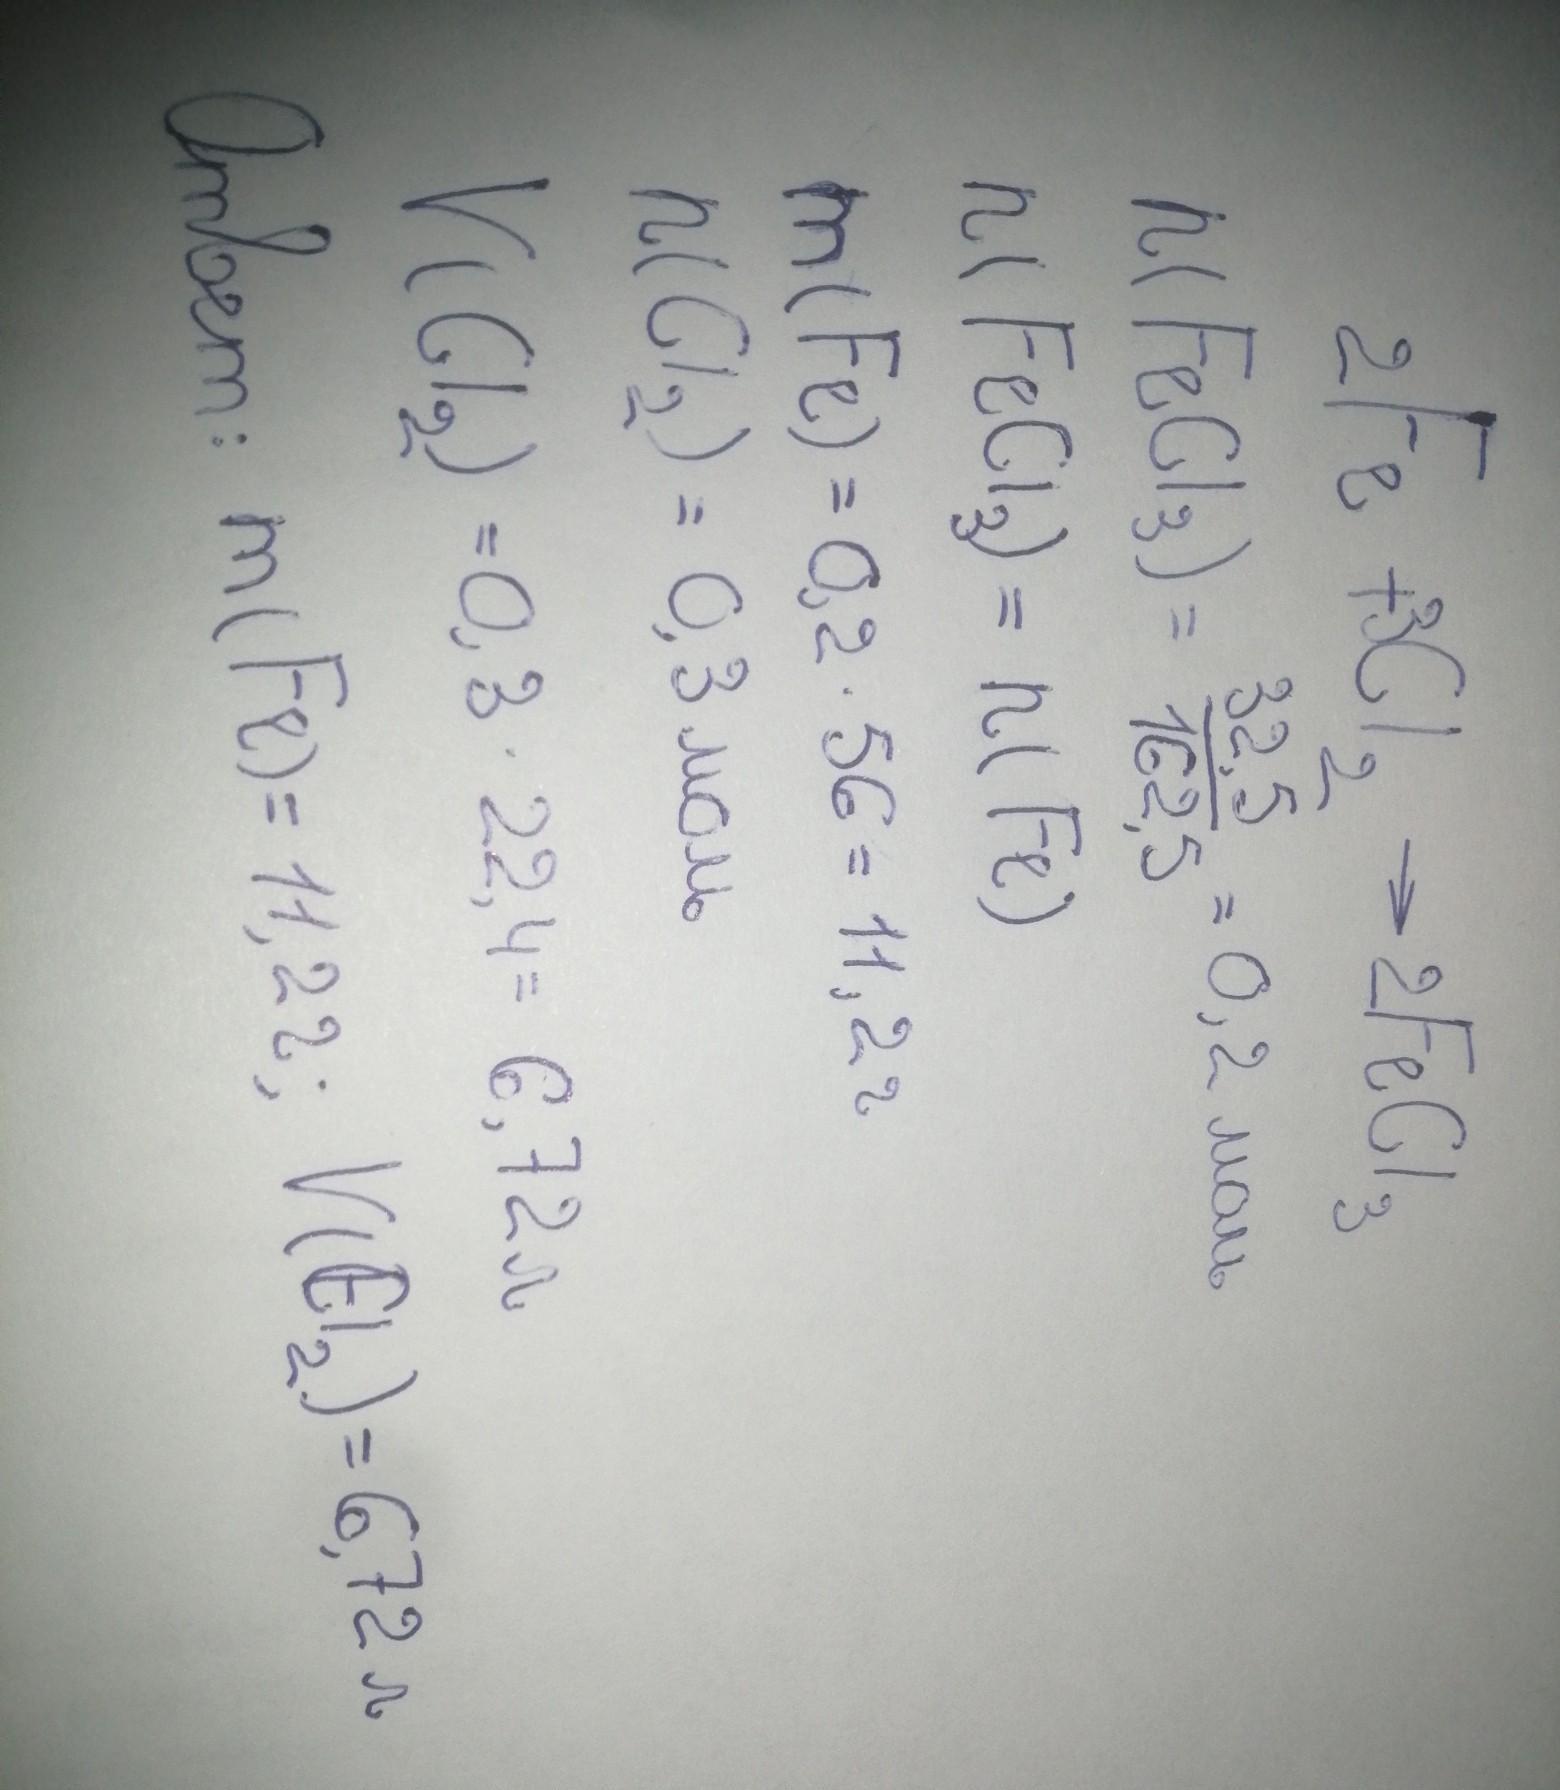 2Fe + 3Cl₂ → 2FeCl₃
n(FeCl₃) = 32,5/162,5 = 0,2 моль
n(FeCl₃) = n(Fe)
m(Fe) = 0,2 · 56 = 11,2 г
n(Cl₂) = 0,3 моль
V(Cl₂) = 0,3 · 22,4 = 6,72 л
Ответ: m(Fe) = 11,2 г; V(Cl₂) = 6,72 л